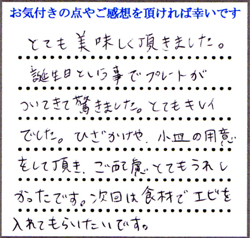 お気付きの点やご感想を頂ければ幸いです
とても美味しく頂きました。
誕生日という事でプレートが
ついてきて驚きました。とてもキレイ
でした。ひざかけや、小皿の用意
をして頂き、ご配慮とてもうれし
かったです。次回は食材でエビを
入れてもらいたいです。